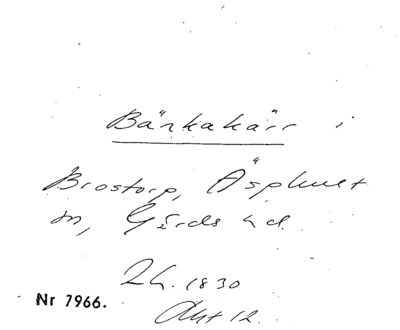 Bänkakärr i
Brostorp, Äsphult
sn, Gärds hd.
Lh. 1830
Nr 7966.
Akt 12.